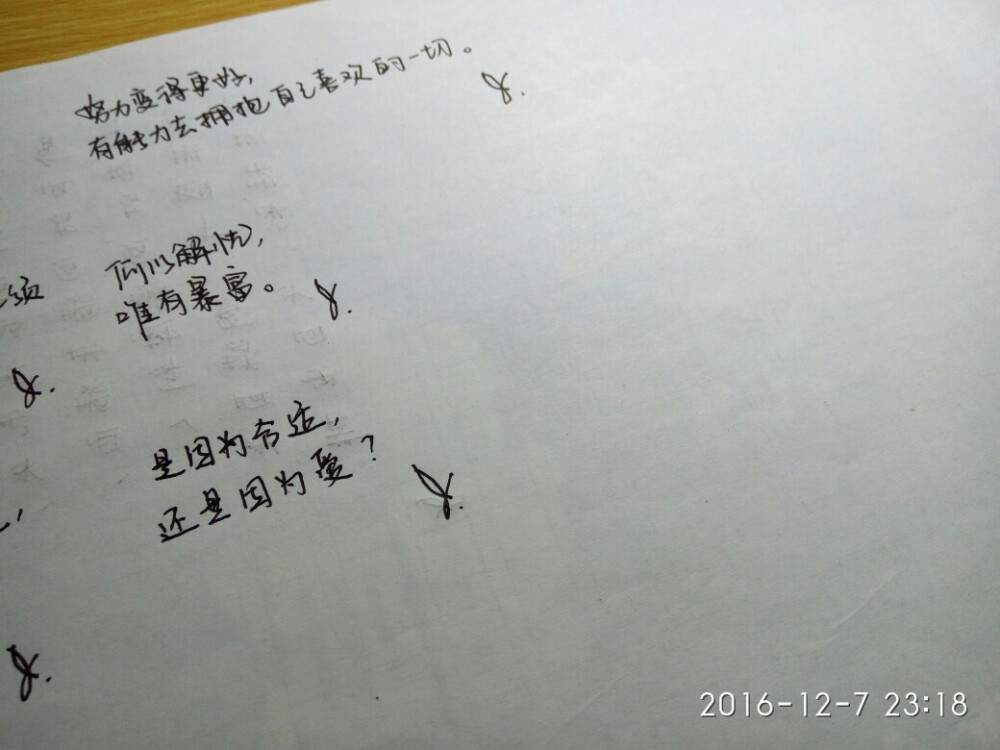 努力变得更好,
有能力去拥抱自己喜欢的一切。
须
何以解忧,
唯有暴富。
是因为合适,
还是因为愛?
2016-12-7 23:18